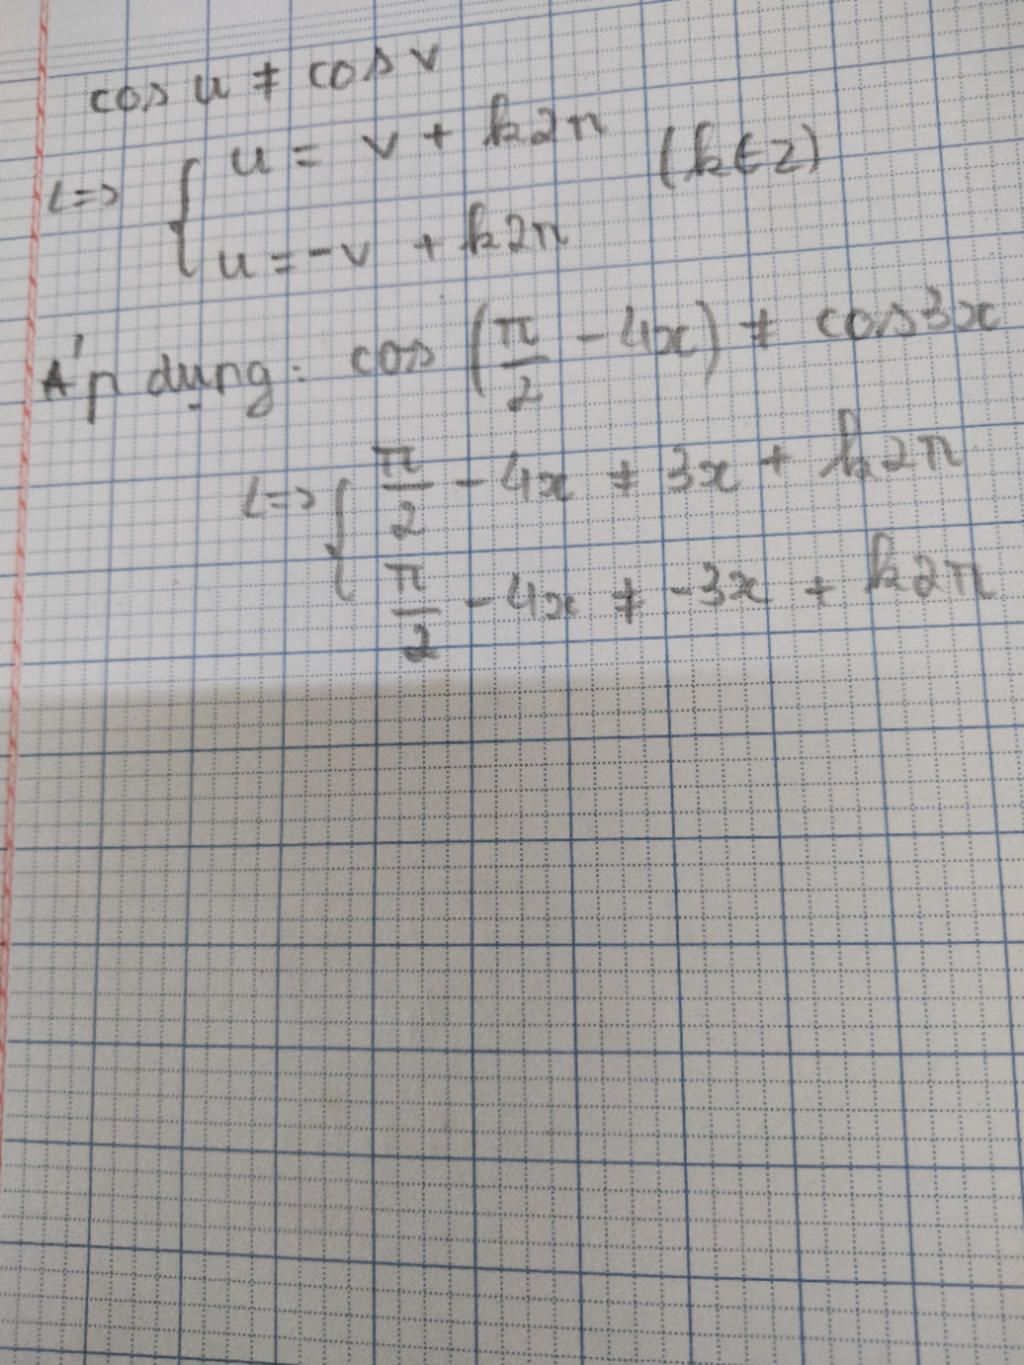 cos u ≠ cos v
<=> { u = v + k2π (k∈Z)
u = -v + k2π
Áp dụng: cos (π/2 - 4x) ≠ cos3x
<=> { π/2 - 4x ≠ 3x + k2π
π/2 - 4x ≠ -3x + k2π